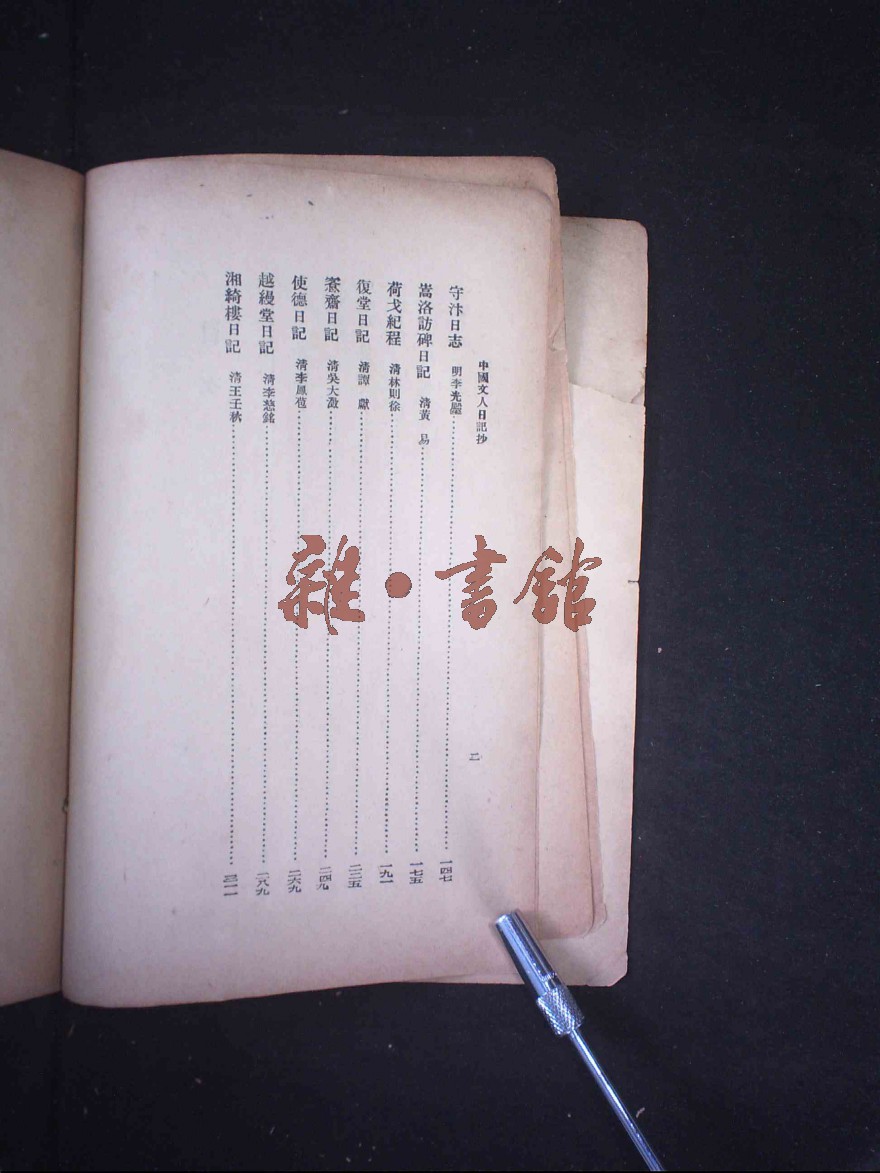 中國文人日記抄
二
守汴日志 明李光壂 一四七
嵩洛訪碑日記 清黃易 一七五
荷戈紀程 清林則徐 一九一
復堂日記 清譚獻 二三五
愙齋日記 清吳大澂 二四九
使德日記 清李鳳苞 二六九
越縵堂日記 清李慈銘 二八九
湘綺樓日記 清王壬秋 三一一
雜·書館